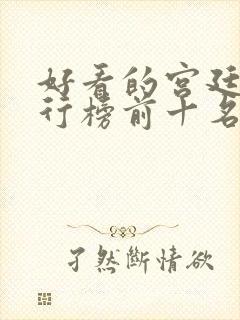 好看的宫廷
行榜前十名
孑然斷情欲